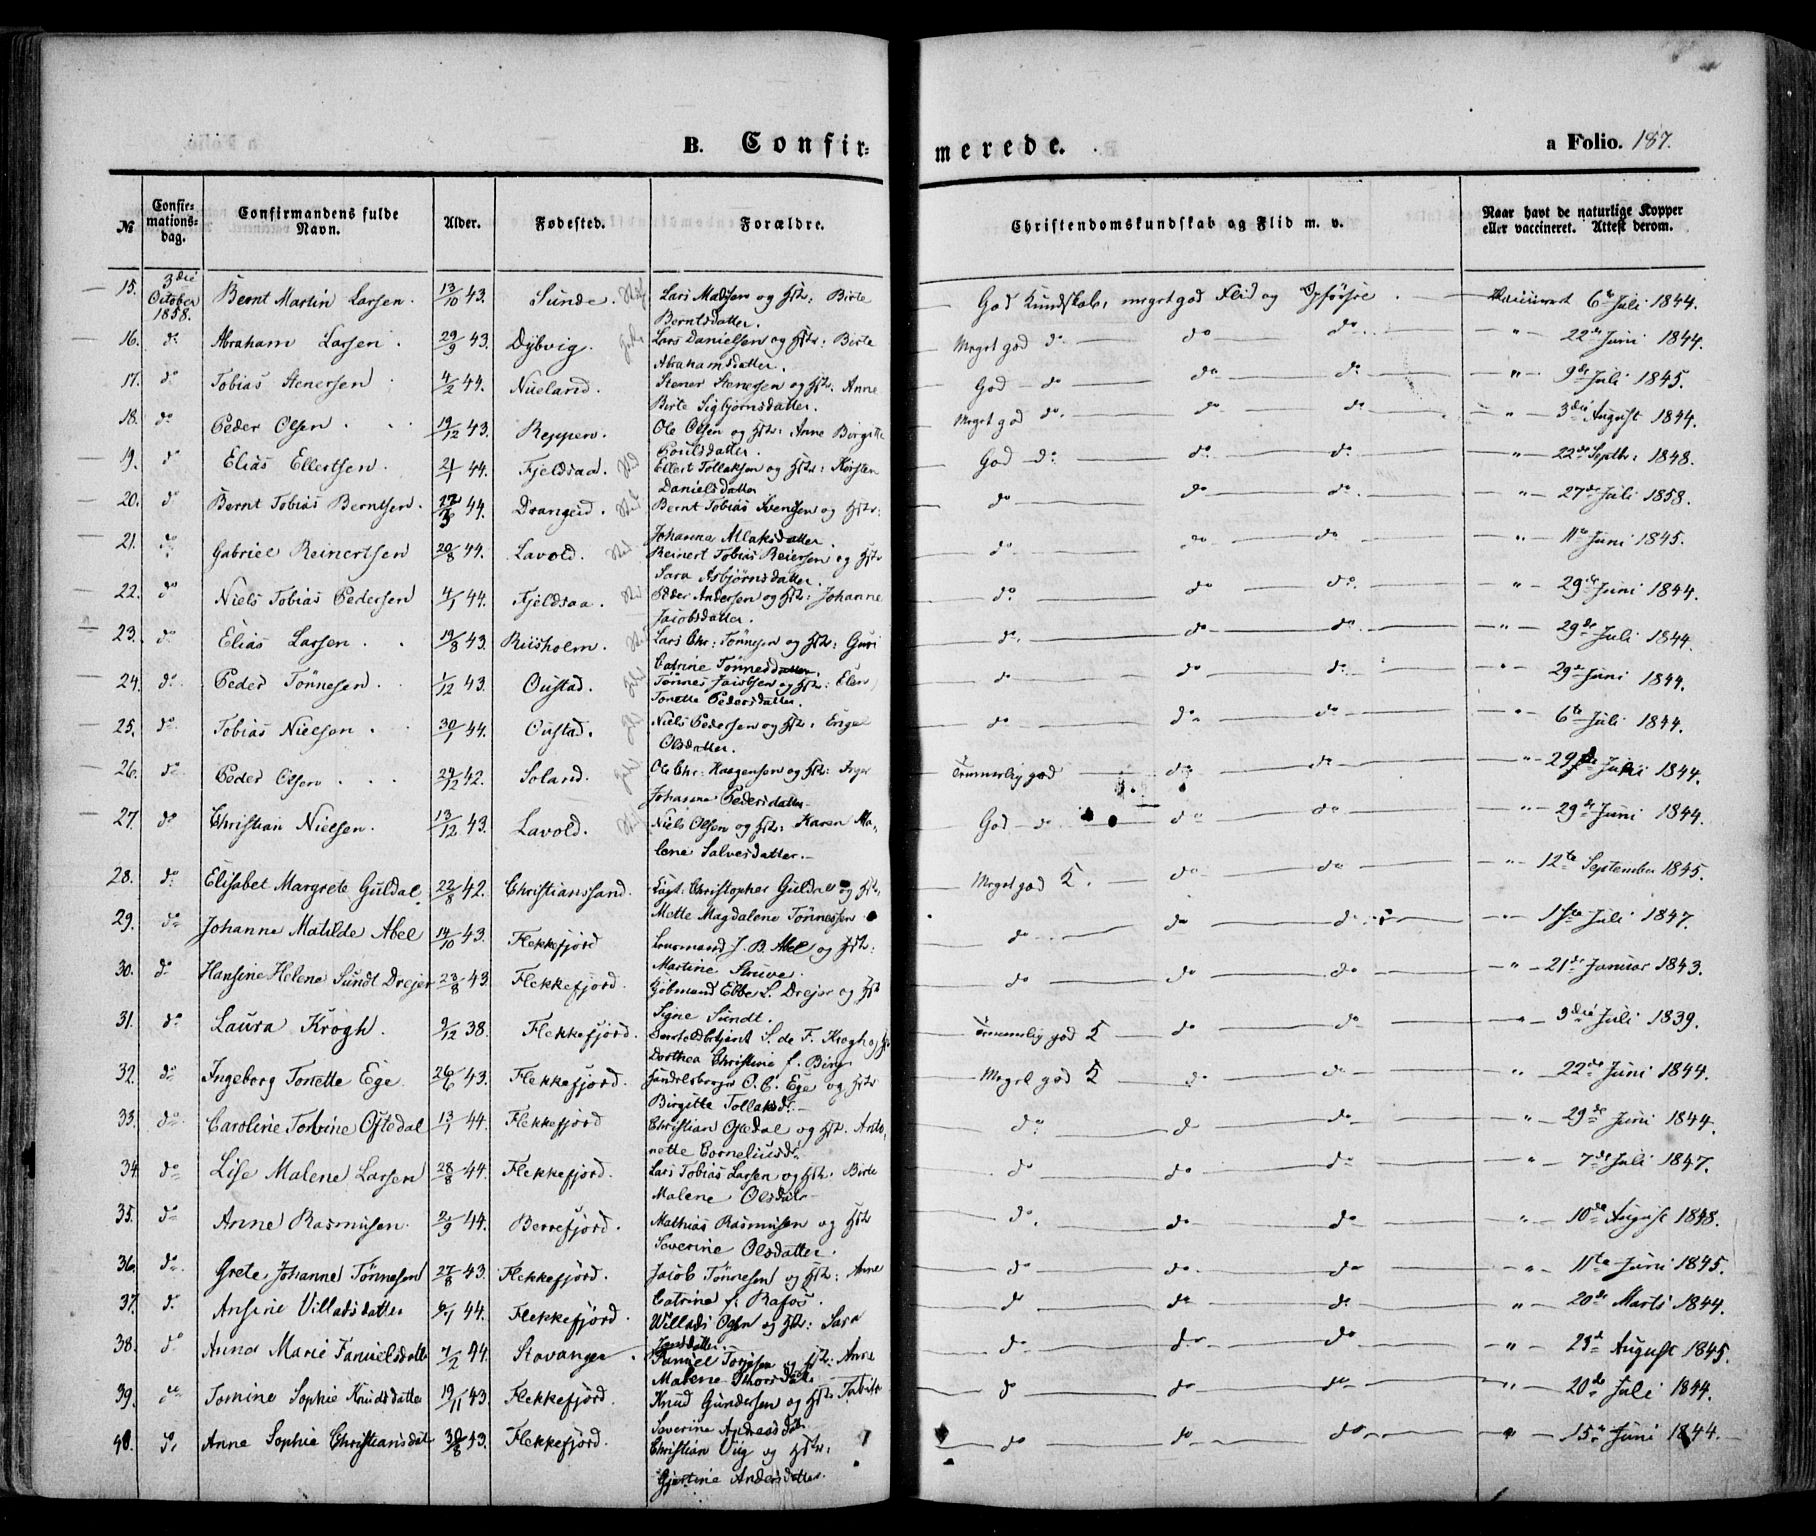 B. Confir-
merede.
a Folio. 187.
№ Confirmationsdag. Confirmandens fulde Navn. Alder. Fødested. Forældre. Christendomskundskab og Flid m. v. Naar havt de naturlige Kopper eller vaccineret. Attest derom.
15. 3die October 1858. Bernt Martin Larsen. 13/10 43. Sunde. Lars Madsen og Hst: Birte Berntsdatter. God Kundskab, meget god Flid og Opførsel Vaccineret 6te Juli 1844.
16. do Abraham Larsen. 29/9 43. Dybvig. Lars Danielsen og Hst: Birte Abrahamsdatter. Meget god do do do " 22de Juni 1844.
17. do Tobias Stenersen 4/2 44. Nueland. Stener Stenersen og Hst: Anne Birte Sigbjørnsdatter. God do do do " 9de Juli 1845.
18. do Peder Olsen 19/12 43. Reppen. Ole Olsen og Hst: Anne Birgitte Poulsdatter. Meget god do do do " 3die August 1844.
19. do Elias Ellertsen. 2/1 44. Fjeldsaa. Ellert Tollaksen og Hst: Kirsten Danielsdatter God do do do " 22de Septbr: 1848.
20. do Bernt Tobias Berntsen. 17/3 44. Drangeid. Bernt Tobias Svensen og Hst: Johanne Allaksdatter. do do do " 27de Juli 1858.
21. do Gabriel Reinertsen 20/8 44. Lavold. Reinert Tobias Reiersen og Hst Sara Asbjørnsdatter. do do do " 11te Juni 1845.
22. do Niels Tobias Pedersen 4/1 44. Fjeldsaa. Peder Andersen og Hst: Johanne Jacobsdatter. do do do " 29de Juni 1844.
23. do Elias Larsen 19/8 43. Riisholm. Lars Chr: Tønnesen og Hst: Guri Catrine Tønnesdatter. do do do " 29de Juli 1844.
24. do Peder Tønnesen 1/12 43. Oustad. Tønnes Jacobsen og Hst: Elen Tonette Pedersdatter. do do do " 29de Juni 1844.
25. do Tobias Nielsen 30/1 44. Oustad. Niels Pedersen og Hst: Engel Olsdatter. do do do " 6te Juli 1844.
26. do Peder Olsen 29/12 42. Soland. Ole Chr: Haagensen og Hst: Inger Johanne Pedersdatter. Temmelig god do do " 29de Juni 1844.
27. do Christian Nielsen. 13/12 43. Lavold. Niels Olsen og Hst: Karen Malene Salvesdatter. God do do do " 29de Juni 1844.
28. do Elisabet Margrete Guldal. 22/8 42. Christianssand. Capt: Christopher Guldal og Hst: Mette Magdalene Tønnessen Meget god K. do do " 12te September 1845.
29. do Johanne Matilde Abel 14/10 43. Flekkefjord Lensmand J. B. Abel og Hst: Martine Struve. do do do " 1ste Juli 1847.
30. do Hansine Helene Sundt Drejer 23/8 43. Flekkefjord. Kjøbmand Ebbe L. Drejer og Hst Signe Sundt. do do do " 21de Januar 1843.
31. do Laura Krogh. 9/12 38. Flekkefjord. S. de F. Krogh og Dorthea Christine f. Bing Temmelig god K do do " 3die Juli 1839.
32. do Ingeborg Tonette Ege. 26/6 43. Flekkefjord. Handelsborger O. C. Ege og Hst Birgitte Tollaksd. Meget god K do do " 22de Juni 1844.
33. do Caroline Torbine Oftedal 13/1 44. Flekkefjord Christian Oftedal og Hst. Antonette Corneliusd. do do do " 29de Juni 1844.
34. do Lise Malene Larsen 28/8 44. Flekkefjord. Lars Tobias Larsen og Hst: Birte Malene Olsdat. do do do " 7de Juli 1847.
35. do Anne Rasmusen. 2/9 44. Berrefjord. Mathias Rasmusen og Hst Severine Olsdatter. do do do " 10de August 1848.
36. do Grete Johanne Tønnesen 27/8 43. Flekkefjord. Jacob Tønnesen og Hst: Anne Catrine f. Rafos. do do do " 11te Juni 1845.
37. do Ansine Villadsdatter 6/1 44. Flekkefjord. Willads Olsen og Hst: Sara Jensdatter. do do do " 20de Marts 1844.
38. do Anna Marie Famuelsdatter 7/2 44. Stavanger. Famuel Torjesen og Hst: Anne Malene Thorsdat. do do do " 23de August 1845.
39. do Tomine Sophie Knudsdatter 19/11 43. Flekkefjord. Knud Gundersen og Hst: Tabitha Severine Andreasdat. do do do " 20de Juli 1844.
40. do Anne Sophie Christiansdat 30/8 43. Flekkefjord. Christian Viig og Hst: Gjertine Andersdatter. do do do " 15de Juni 1844.